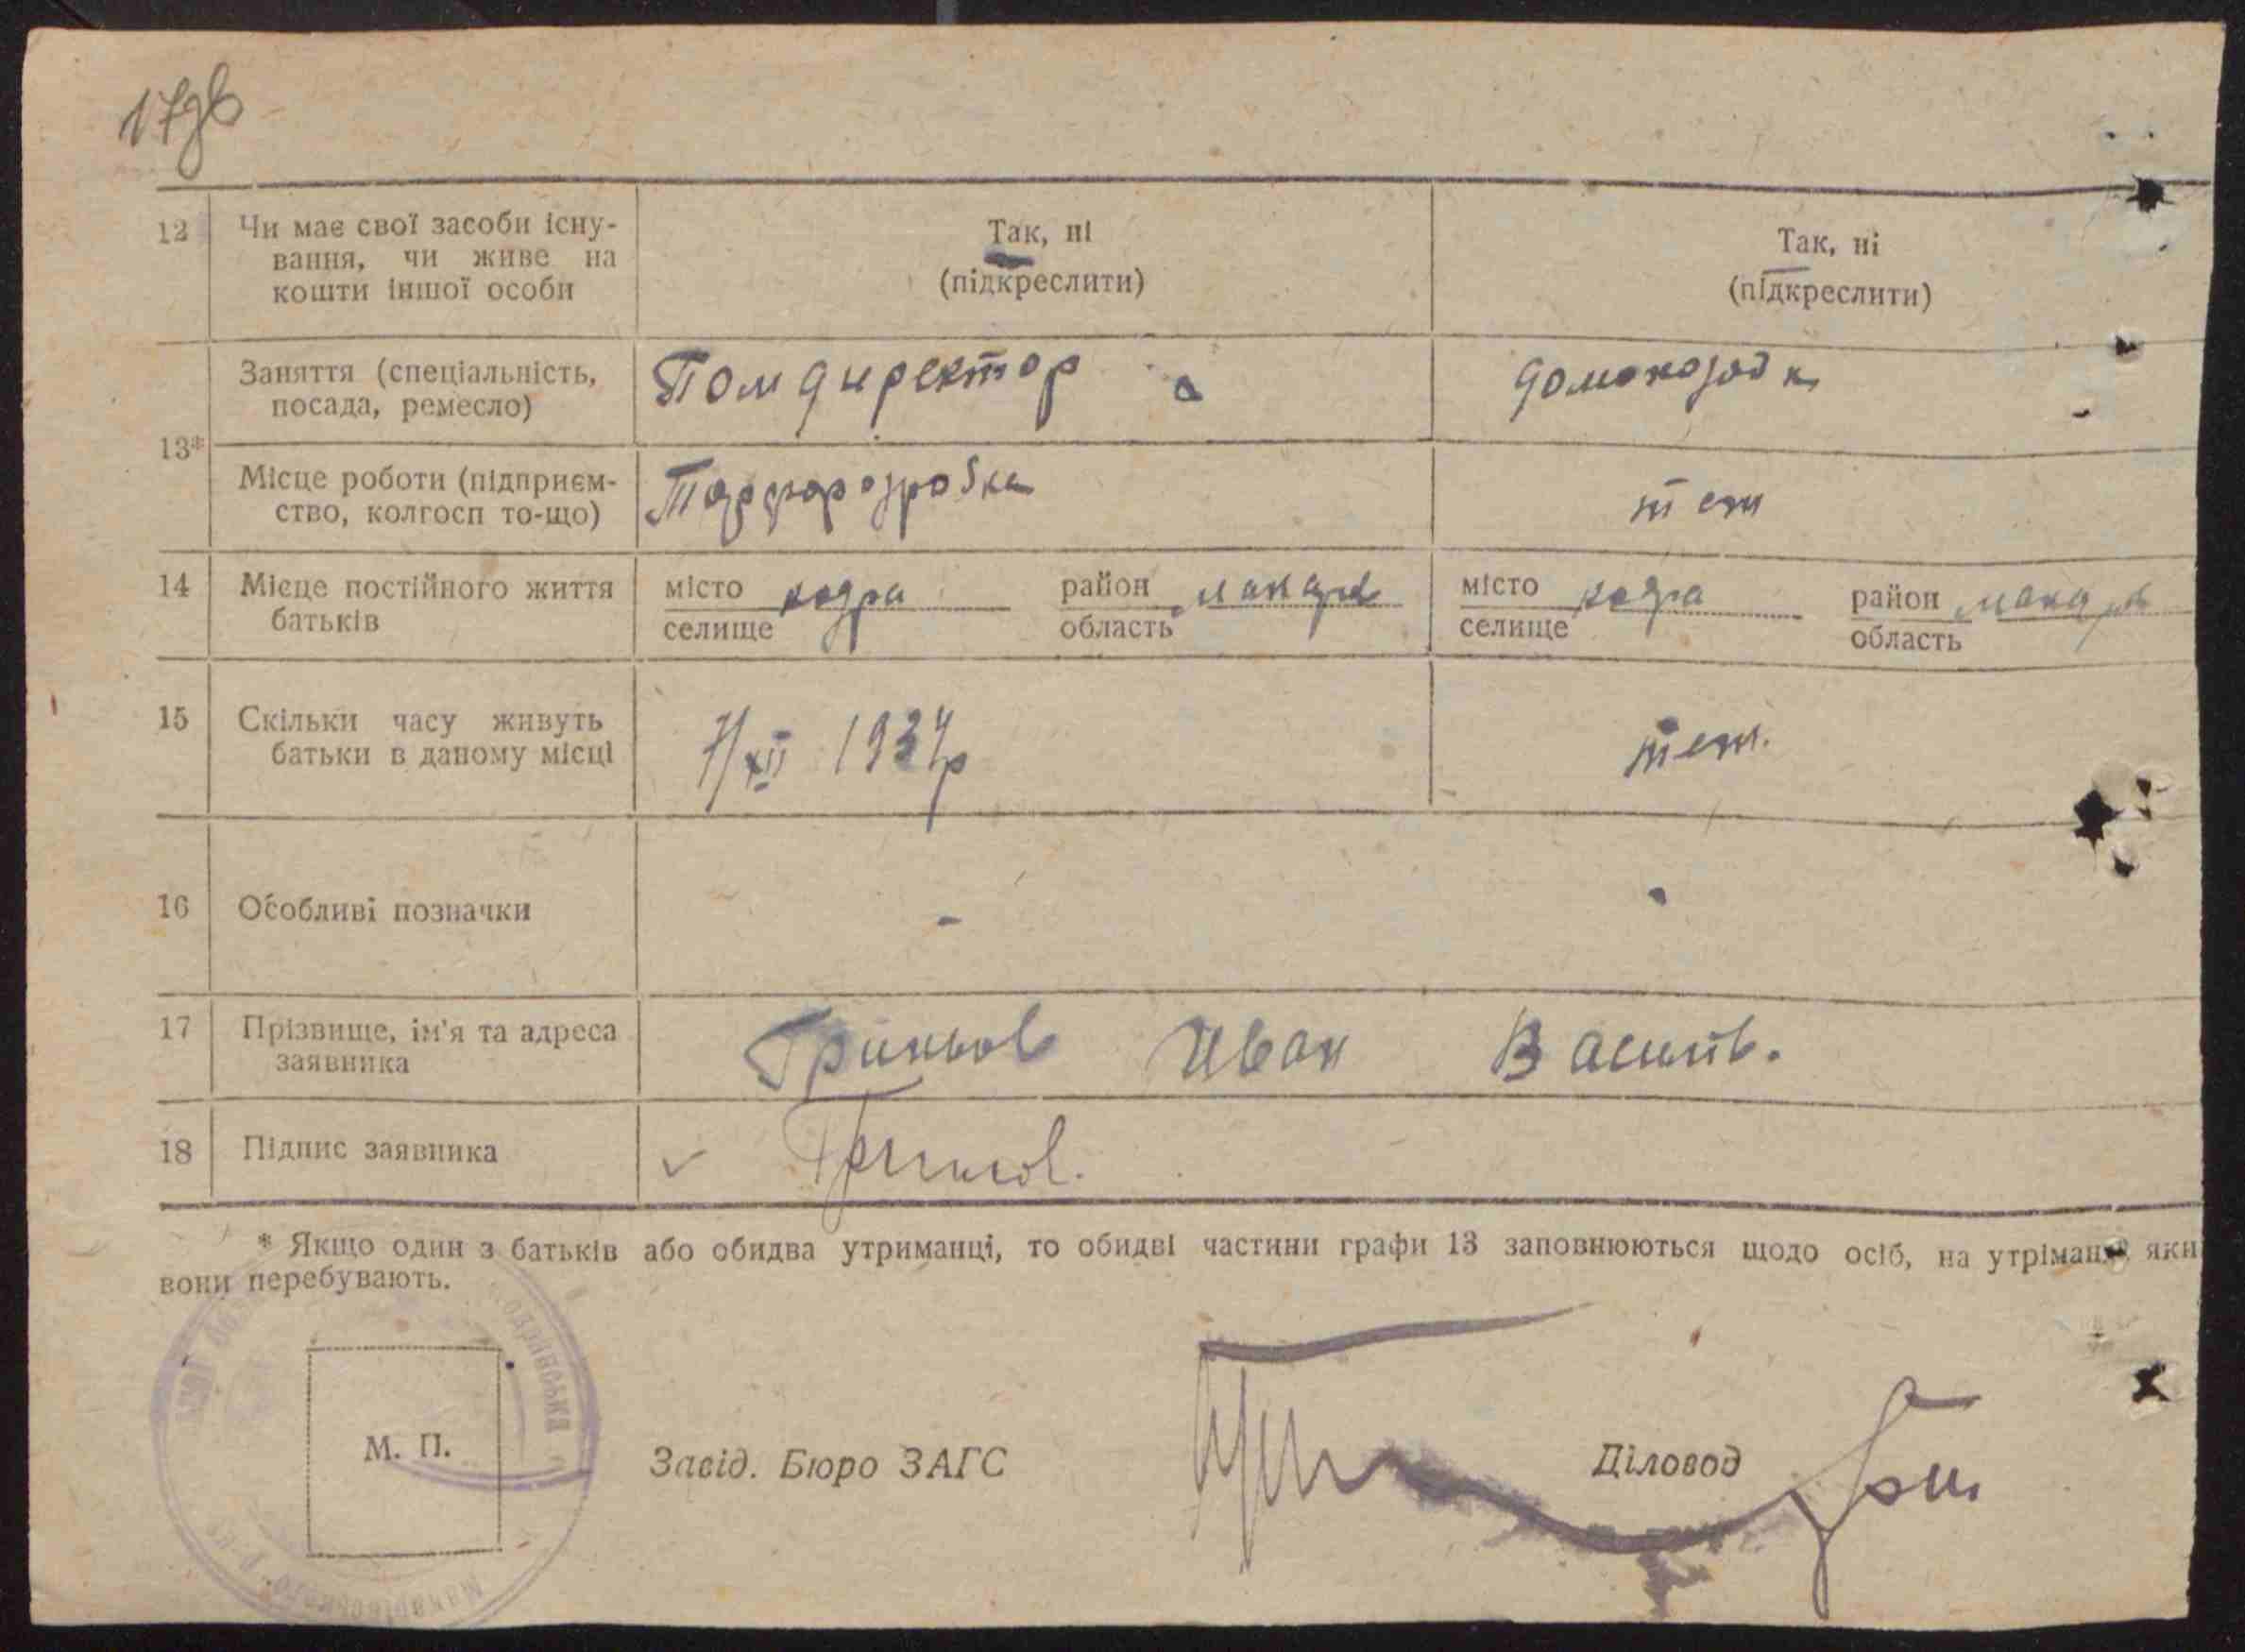 12 Чи має свої засоби існу-
вання, чи живе на
кошти іншої особи
Так, ні
(підкреслити)
Так, ні
(підкреслити)
13*
Заняття (спеціальність,
посада, ремесло)
Помдиректор
Місце роботи (підприєм-
ство, колгосп то-що)
теж
14 Місце постійного життя
батьків
місто кодра район макарів
селище область
місто кодра район макарів
селище область
15 Скільки часу живуть
батьки в даному місці
7/XII 1934р
теж.
16 Особливі позначки
-
17 Прізвище, ім'я та адреса
заявника
Гриньов Иван Васильв.
18 Підпис заявника
Гриньов.
* Якщо один з батьків або обидва утриманці, то обидві частини графи 13 заповнюються щодо осіб, на утріманні яки
вони перебувають.
М. П.
Завід. Бюро ЗАГС
Діловод